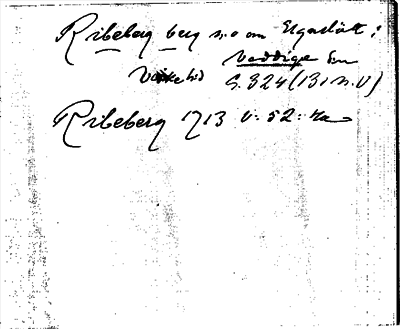 Ribeberg berg n.o om Elgaslätt i
Veddige sn
S. 324 (13: n. V)
Ribeberg 1713 V: 52: Ha